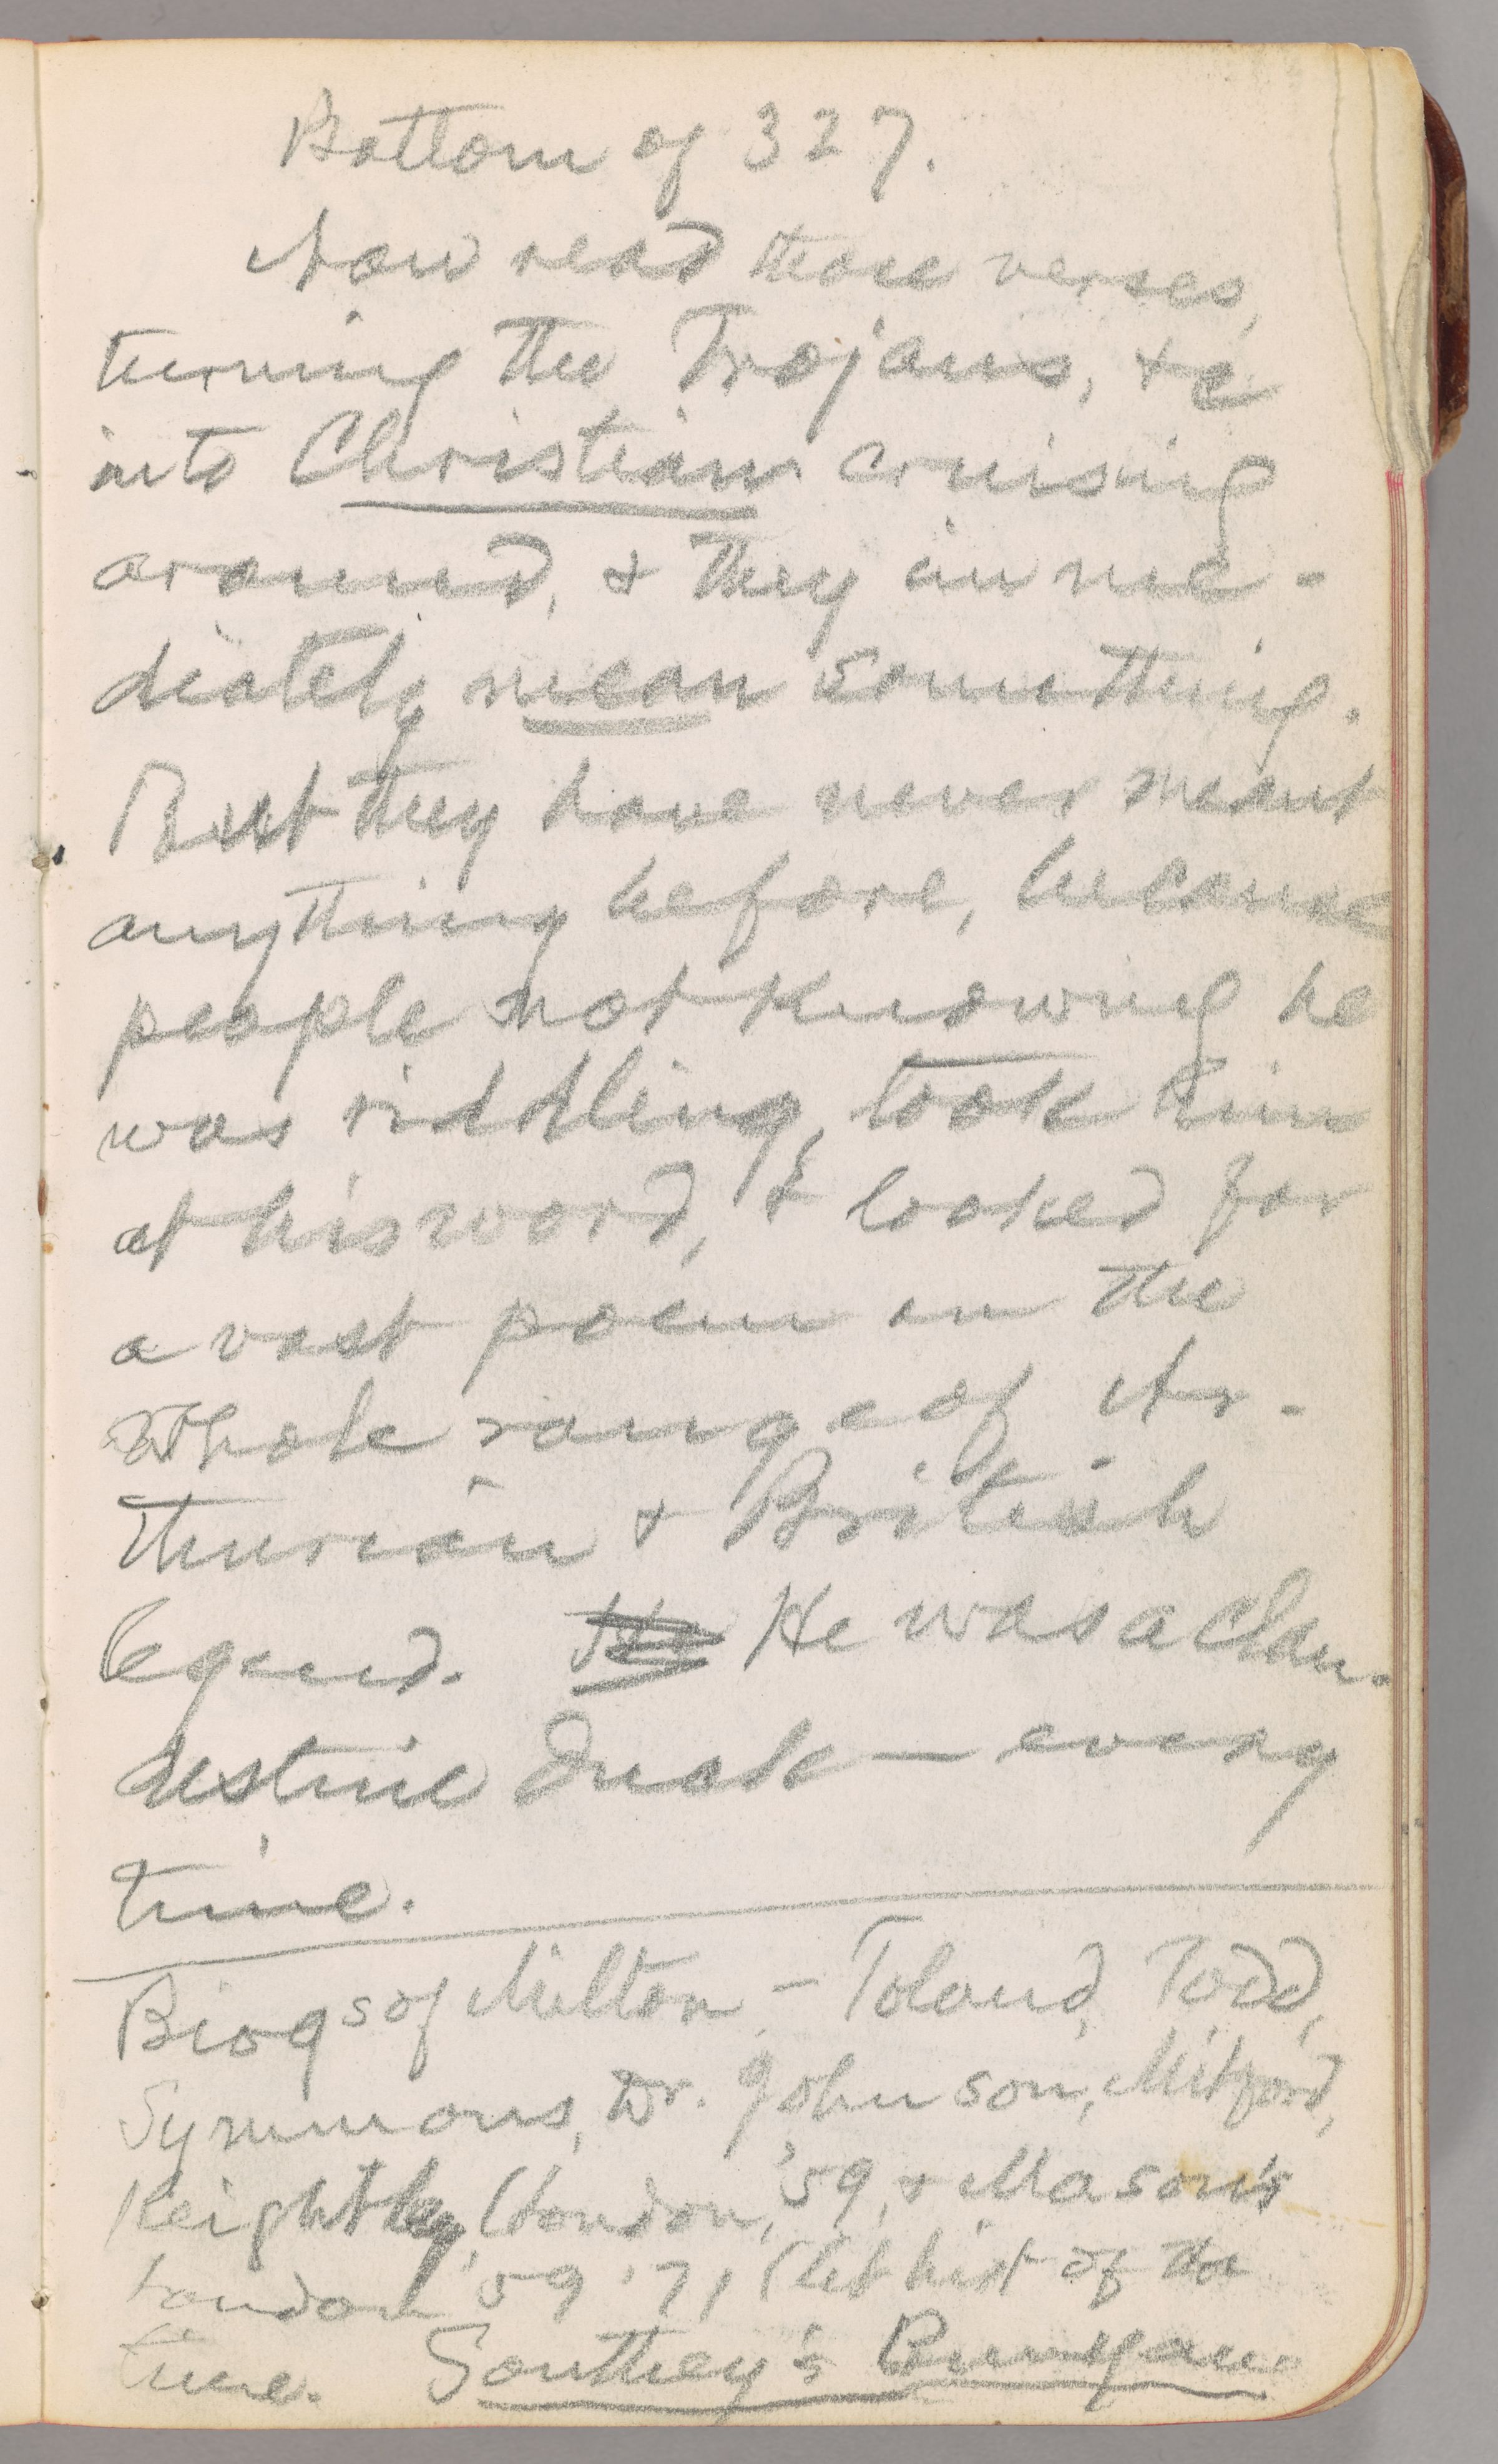 Bottom of 327.
Now read those verses,
turning the Trojans, &c
into Christian cruising
around, & they imme-
diately mean something.
But they have never meant
anything before, because
people not knowing he
was riddling, took him
at his word, & looked for
a vast poem on the
whole range of Ar-
thurian & British
legend. He was a clan-
destine Duck — every
time.
Biogs of Milton - Toland, Todd,
Symmons, Dr. Johnson, Mitford,
Keightley, (London, '59, & Mason's
London '59 '71 (lit hist of the
time. Southey's Bunyan